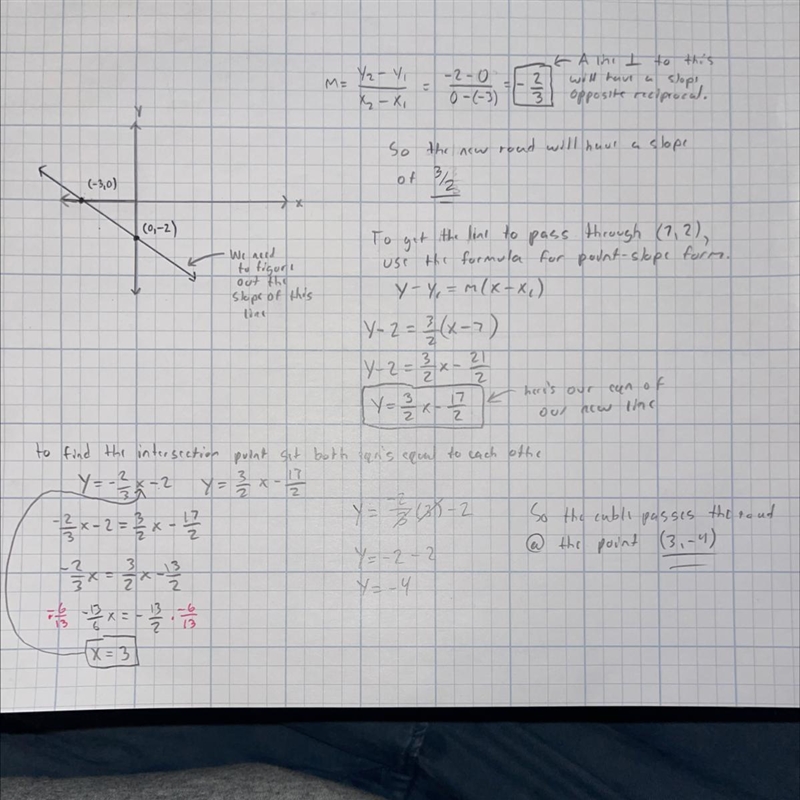 M = (y₂ - y₁)/(x₂ - x₁) = (-2-0)/(0-(-3)) = -2/3
← A line ⊥ to this
will have a slope
opposite reciprocal.
So the new road will have a slope
of 3/2
y
x
(-3,0)
(0,-2)
We need
to figure
out the
slope of this
line
To get the line to pass through (7,2),
use the formula for point-slope form.
y - y₁ = m(x - x₁)
y - 2 = 3/2(x - 7)
y - 2 = 3/2x - 21/2
y = 3/2x - 17/2
← here's our eqn of
our new line
to find the intersection point set both eqn's equal to each othe
y = -2/3x - 2 y = 3/2x - 17/2
-2/3x - 2 = 3/2x - 17/2
-2/3x = 3/2x - 13/2
·-6/13 -13/6x = -13/2 · -6/13
x = 3
y = -2/3(3) - 2
y = -2 - 2
y = -4
So the cable passes the road
@ the point (3,-4)